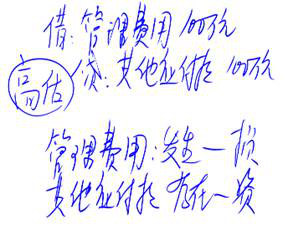 借：管理费用 100万元
高估 贷：其他应付款 100万元
管理费用：发生—损
其他应付款 存在—资